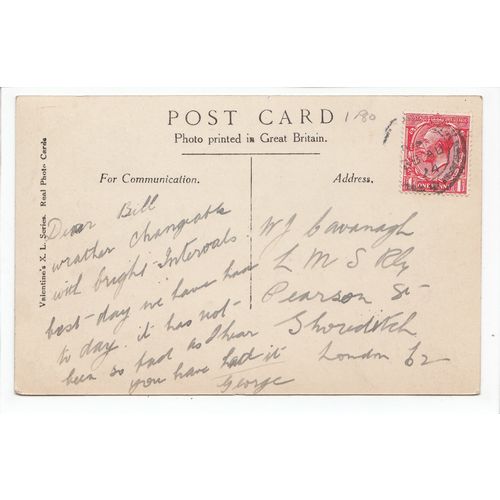 POST CARD
1/80
Photo printed in Great Britain.
For Communication.
Address.
Valentine's X. L. Series. Real Photo Cards
Dear Bill
weather changeable
with bright Intervals
best day we have had
to day. it has not
been so bad as I hear
you have had it
George
W J Cavanagh
L M S Rly
Pearson St
Shoreditch
London E2
ONE PENNY